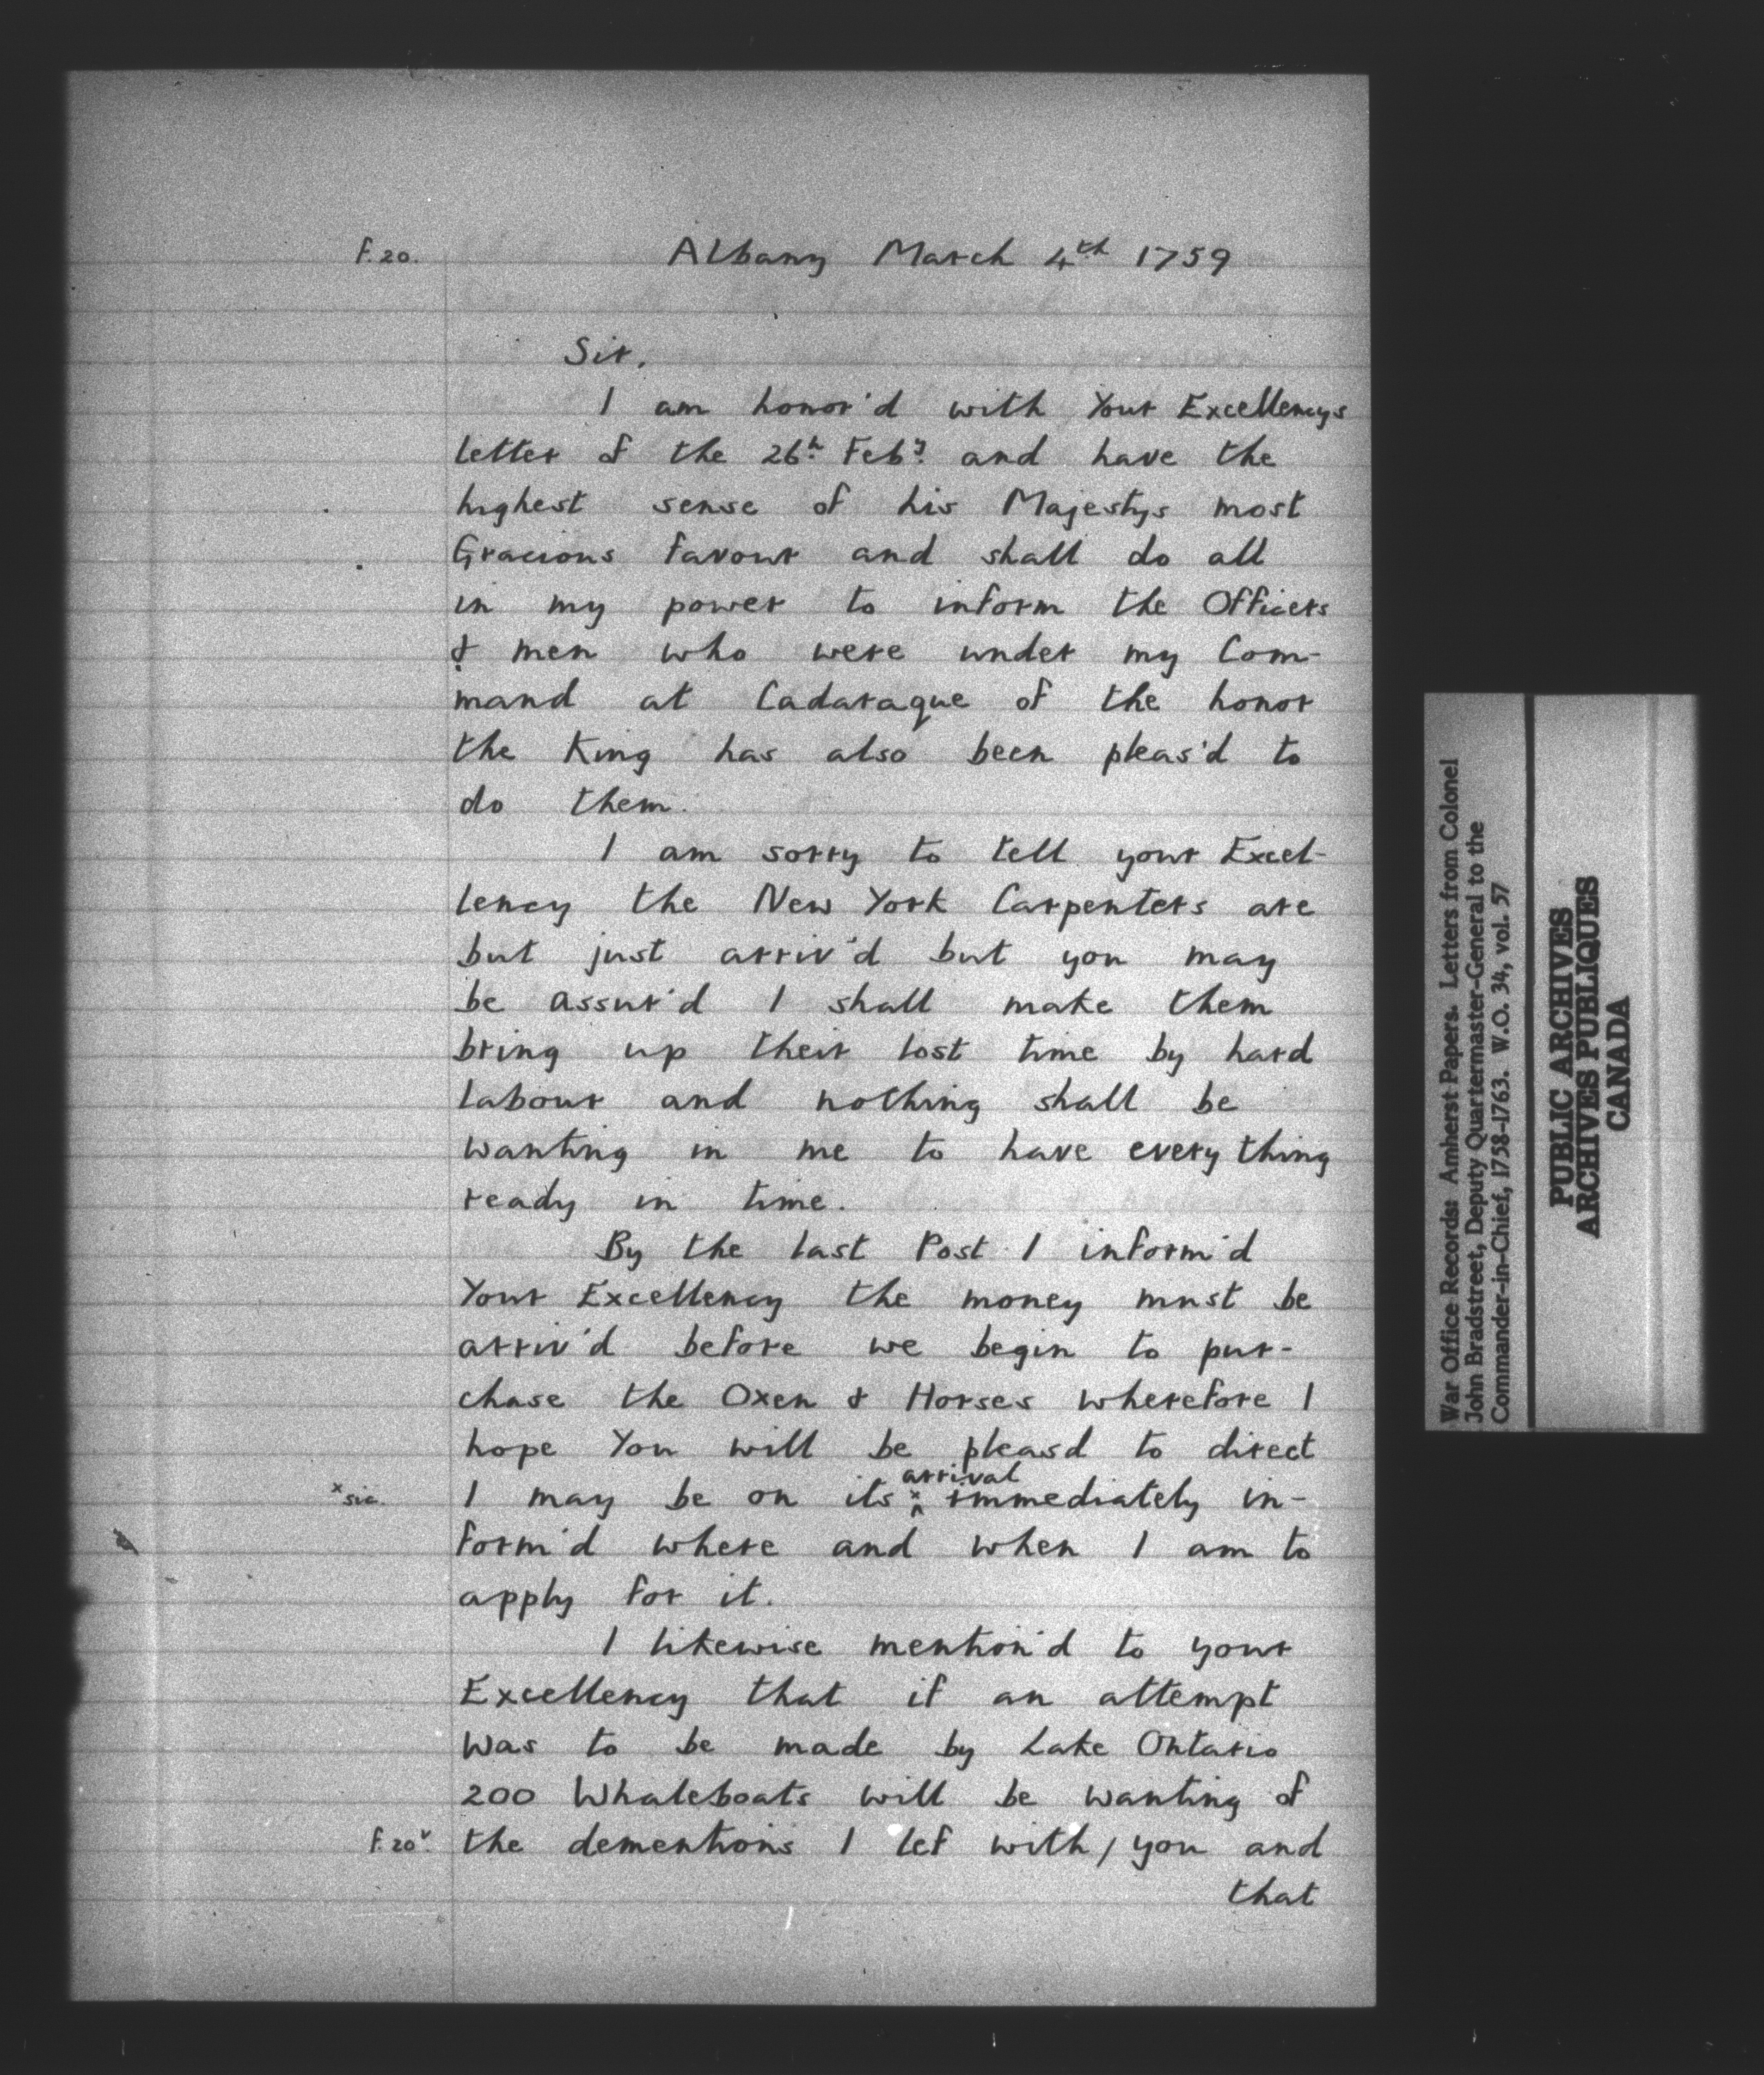 F. 20. Albany March 4th 1759
Sir,
I am honor'd with Your Excellencys
letter of the 26th Feby and have the
highest sense of his Majestys most
Gracious favour and shall do all
in my power to inform the Officers
& men who were under my Com-
mand at Cadaraque of the honor
the King has also been pleas'd to
do them.
I am sorry to tell your Excel-
lency the New York Carpenters are
but just arriv'd but you may
be assur'd I shall make them
bring up their lost time by hard
labour and nothing shall be
wanting in me to have every thing
ready in time.
By the last Post I inform'd
Your Excellency the money must be
arriv'd before we begin to pur-
chase the Oxen & Horses wherefore I
hope You will be pleasd to direct
arrival
x sic. I may be on its x^ immediately in-
form'd where and when I am to
apply for it.
I likewise mention'd to your
Excellency that if an attempt
was to be made by Lake Ontario
200 Whaleboats will be wanting of
F. 20v. the dementions I lef with / you and
that
War Office Records: Amherst Papers. Letters from Colonel
John Bradstreet, Deputy Quartermaster-General to the
Commander-in-Chief, 1758-1763. W.O. 34, vol. 57
PUBLIC ARCHIVES
ARCHIVES PUBLIQUES
CANADA